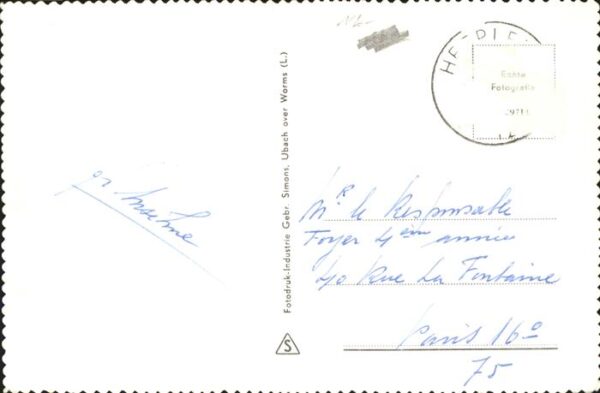 Echte
Fotografie
Fotodruk-Industrie Gebr. Simons, Ubach over Worms (L.)
S
Mr le Responsable
Foyer 4ème année
40 Rue La Fontaine
Paris 16e
75